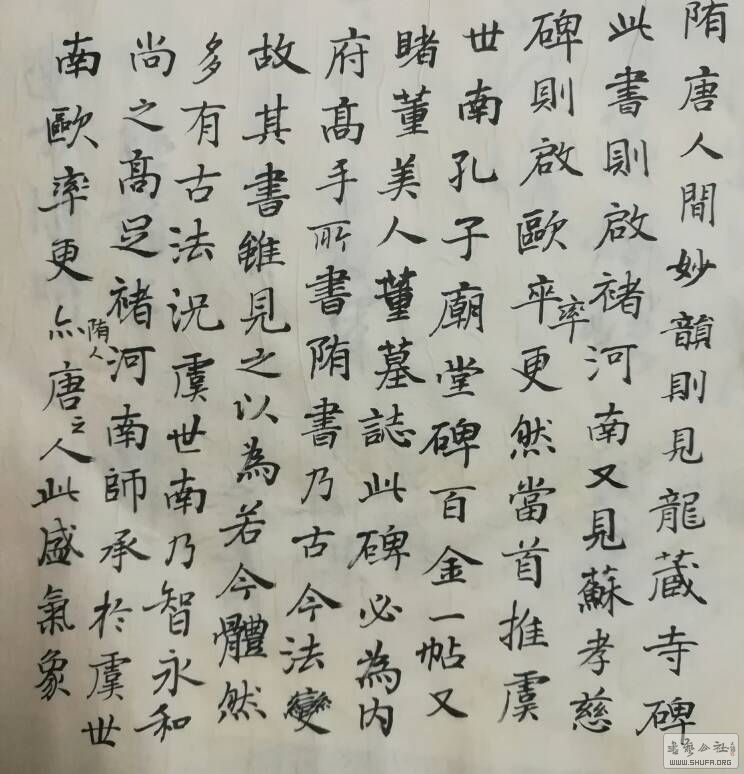 陏唐人間妙韻則見龍蔵寺碑
此書則啟褚河南又見蘇孝慈
碑則啟歐卒率更然當首推虞
世南孔子廟堂碑百金一帖又
睹董美人董墓誌此碑必為内
府髙手所書陏書乃古今法變
故其書雖見之以為若今體然
多有古法況虞世南乃智永和
尚之髙足褚河南師承於虞世
南歐率更亦陏人唐之人此盛氣象
書藝公社
WWW.SHUFA.ORG